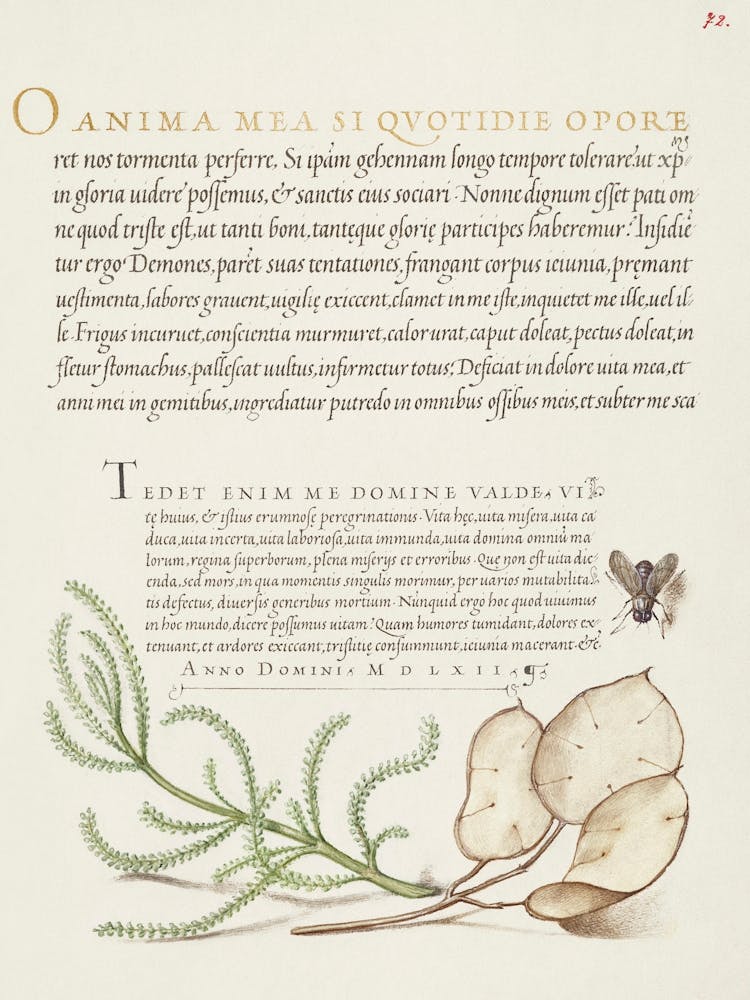 72.
O ANIMA MEA SI QVOTIDIE OPORTE
ret nos tormenta perferre, Si ipām gehennam longo tempore tolerare, ut xp̄m
in gloria uidere possemus, & sanctis eius sociari. Nonne dignum esset pati om
ne quod triste est, ut tanti boni, tantęque glorię participes haberemur? Insidiē
tur ergo Demones, parēt suas tentationes, frangant corpus ieiunia, pręmant
uestimenta, labores grauent, uigilię exiccent, clamet in me iste, inquietet me ille, uel il-
le. Frigus incuruet, conscientia murmuret, calor urat, caput doleat, pectus doleat, in
fletur stomachus, pallescat uultus, infirmetur totus, Deficiat in dolore uita mea, et
anni mei in gemitibus, ingrediatur putredo in omnibus ossibus meis, et subter me sca
TEDET ENIM ME DOMINE VALDE, VI
tę huius, & istius erumnosę peregrinationis. Vita hęc, uita misera, uita ca
duca, uita incerta, uita laboriosa, uita immunda, uita domina omniū ma
lorum, regina superborum, plena miserijs et erroribus. Que non est uita dic-
enda, sed mors, in qua momentis singulis morimur, per uarios mutabilita
tis defectus, diuersis generibus mortium. Nūnquid ergo hoc quod uiuimus
in hoc mundo, dicere possumus uitam? Quam humores tumidant, dolores ex-
tenuant, et ardores exiccant, tristitię consummunt, ieiunia macerant. &c̄.
ANNO DOMINI, M D L X I I.